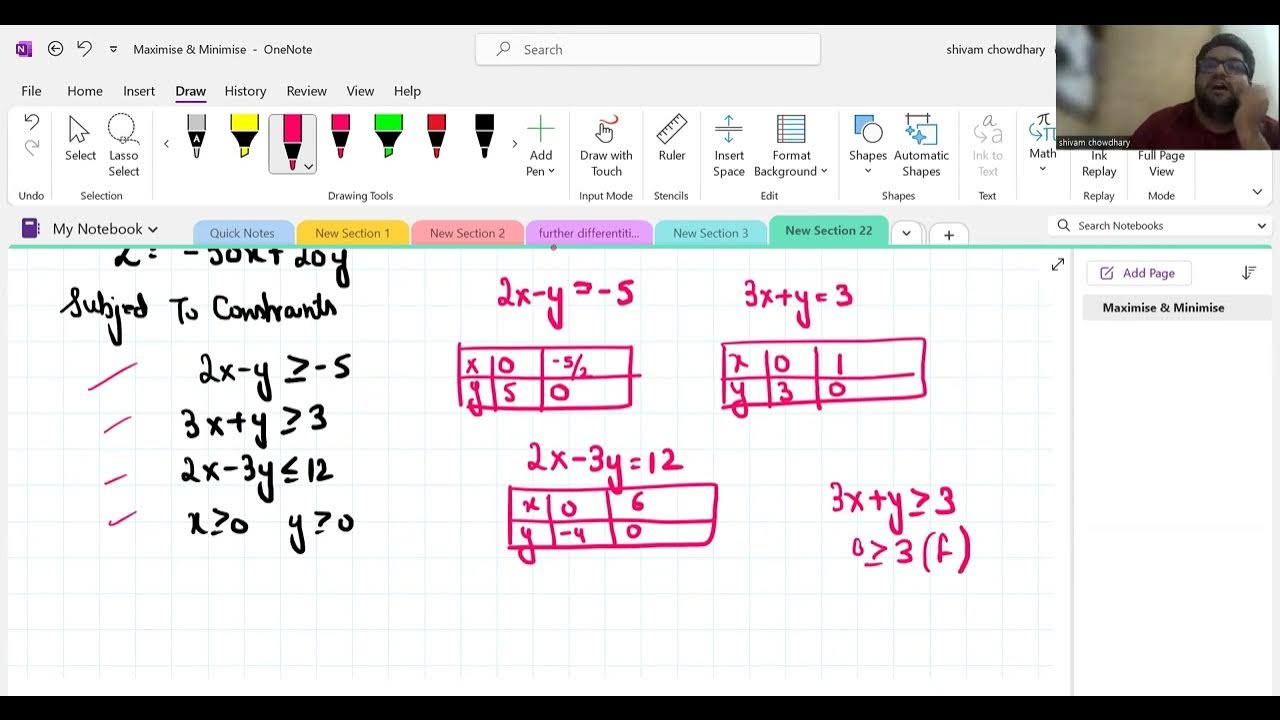 Maximise & Minimise - OneNote
Search
shivam chowdhary
File Home Insert Draw History Review View Help
Undo
Select
Lasso Select
Selection
Drawing Tools
Add Pen
Draw with Touch
Input Mode
Ruler
Stencils
Insert Space
Format Background
Edit
Shapes
Automatic Shapes
Shapes
Ink to Text
Text
Math
Ink Replay
Replay
Full Page View
Mode
shivam chowdhary
My Notebook
Quick Notes
New Section 1
New Section 2
further differentiti...
New Section 3
New Section 22
Search Notebooks
Add Page
Maximise & Minimise
-50x+20y
Subject To Constraints
2x-y ≥ -5
3x+y ≥ 3
2x-3y ≤ 12
x≥0 y≥0
2x-y = -5
x 0 -5/2
y 5 0
3x+y = 3
x 0 1
y 3 0
2x-3y = 12
x 0 6
y -4 0
3x+y ≥ 3
0 ≥ 3 (f)